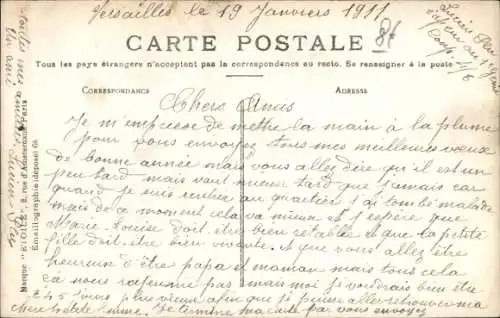 Versailles le 19 Janviers 1911
CARTE POSTALE
Tous les pays étrangers n'acceptent pas la correspondance au recto. Se renseigner à la poste
CORRESPONDANCE
ADRESSE
Chers Amis
Je m'empresse de mettre la main à la plume
pour vous envoyez tous mes meilleures vœux
de bonne année mais vous allez dire qu'il est un
peu tard mais vaut mieux tard que jamais car
quand je suis rentrer au quartier j'ai tombé malade
mais de ce moment cela va mieux et j'espère que
Marie-Louise doit être bien rétablie et que la petite
fille doit être bien vivante. et que vous allez être
heureux d'être papa et maman mais tous cela
ca nous rajeunie pas mais moi je voudrais bien être
245 jours plus vieux afin que je puisse aller retrouver ma
chere petite femme. Je termine ma carte par vous envoyez
toutes mes amitiés
Un ami
Marque "ETOILE", 2, rue d'Aboukir, Paris
Émaillographie déposé 68
Lucien
sapeur au 1er Génie